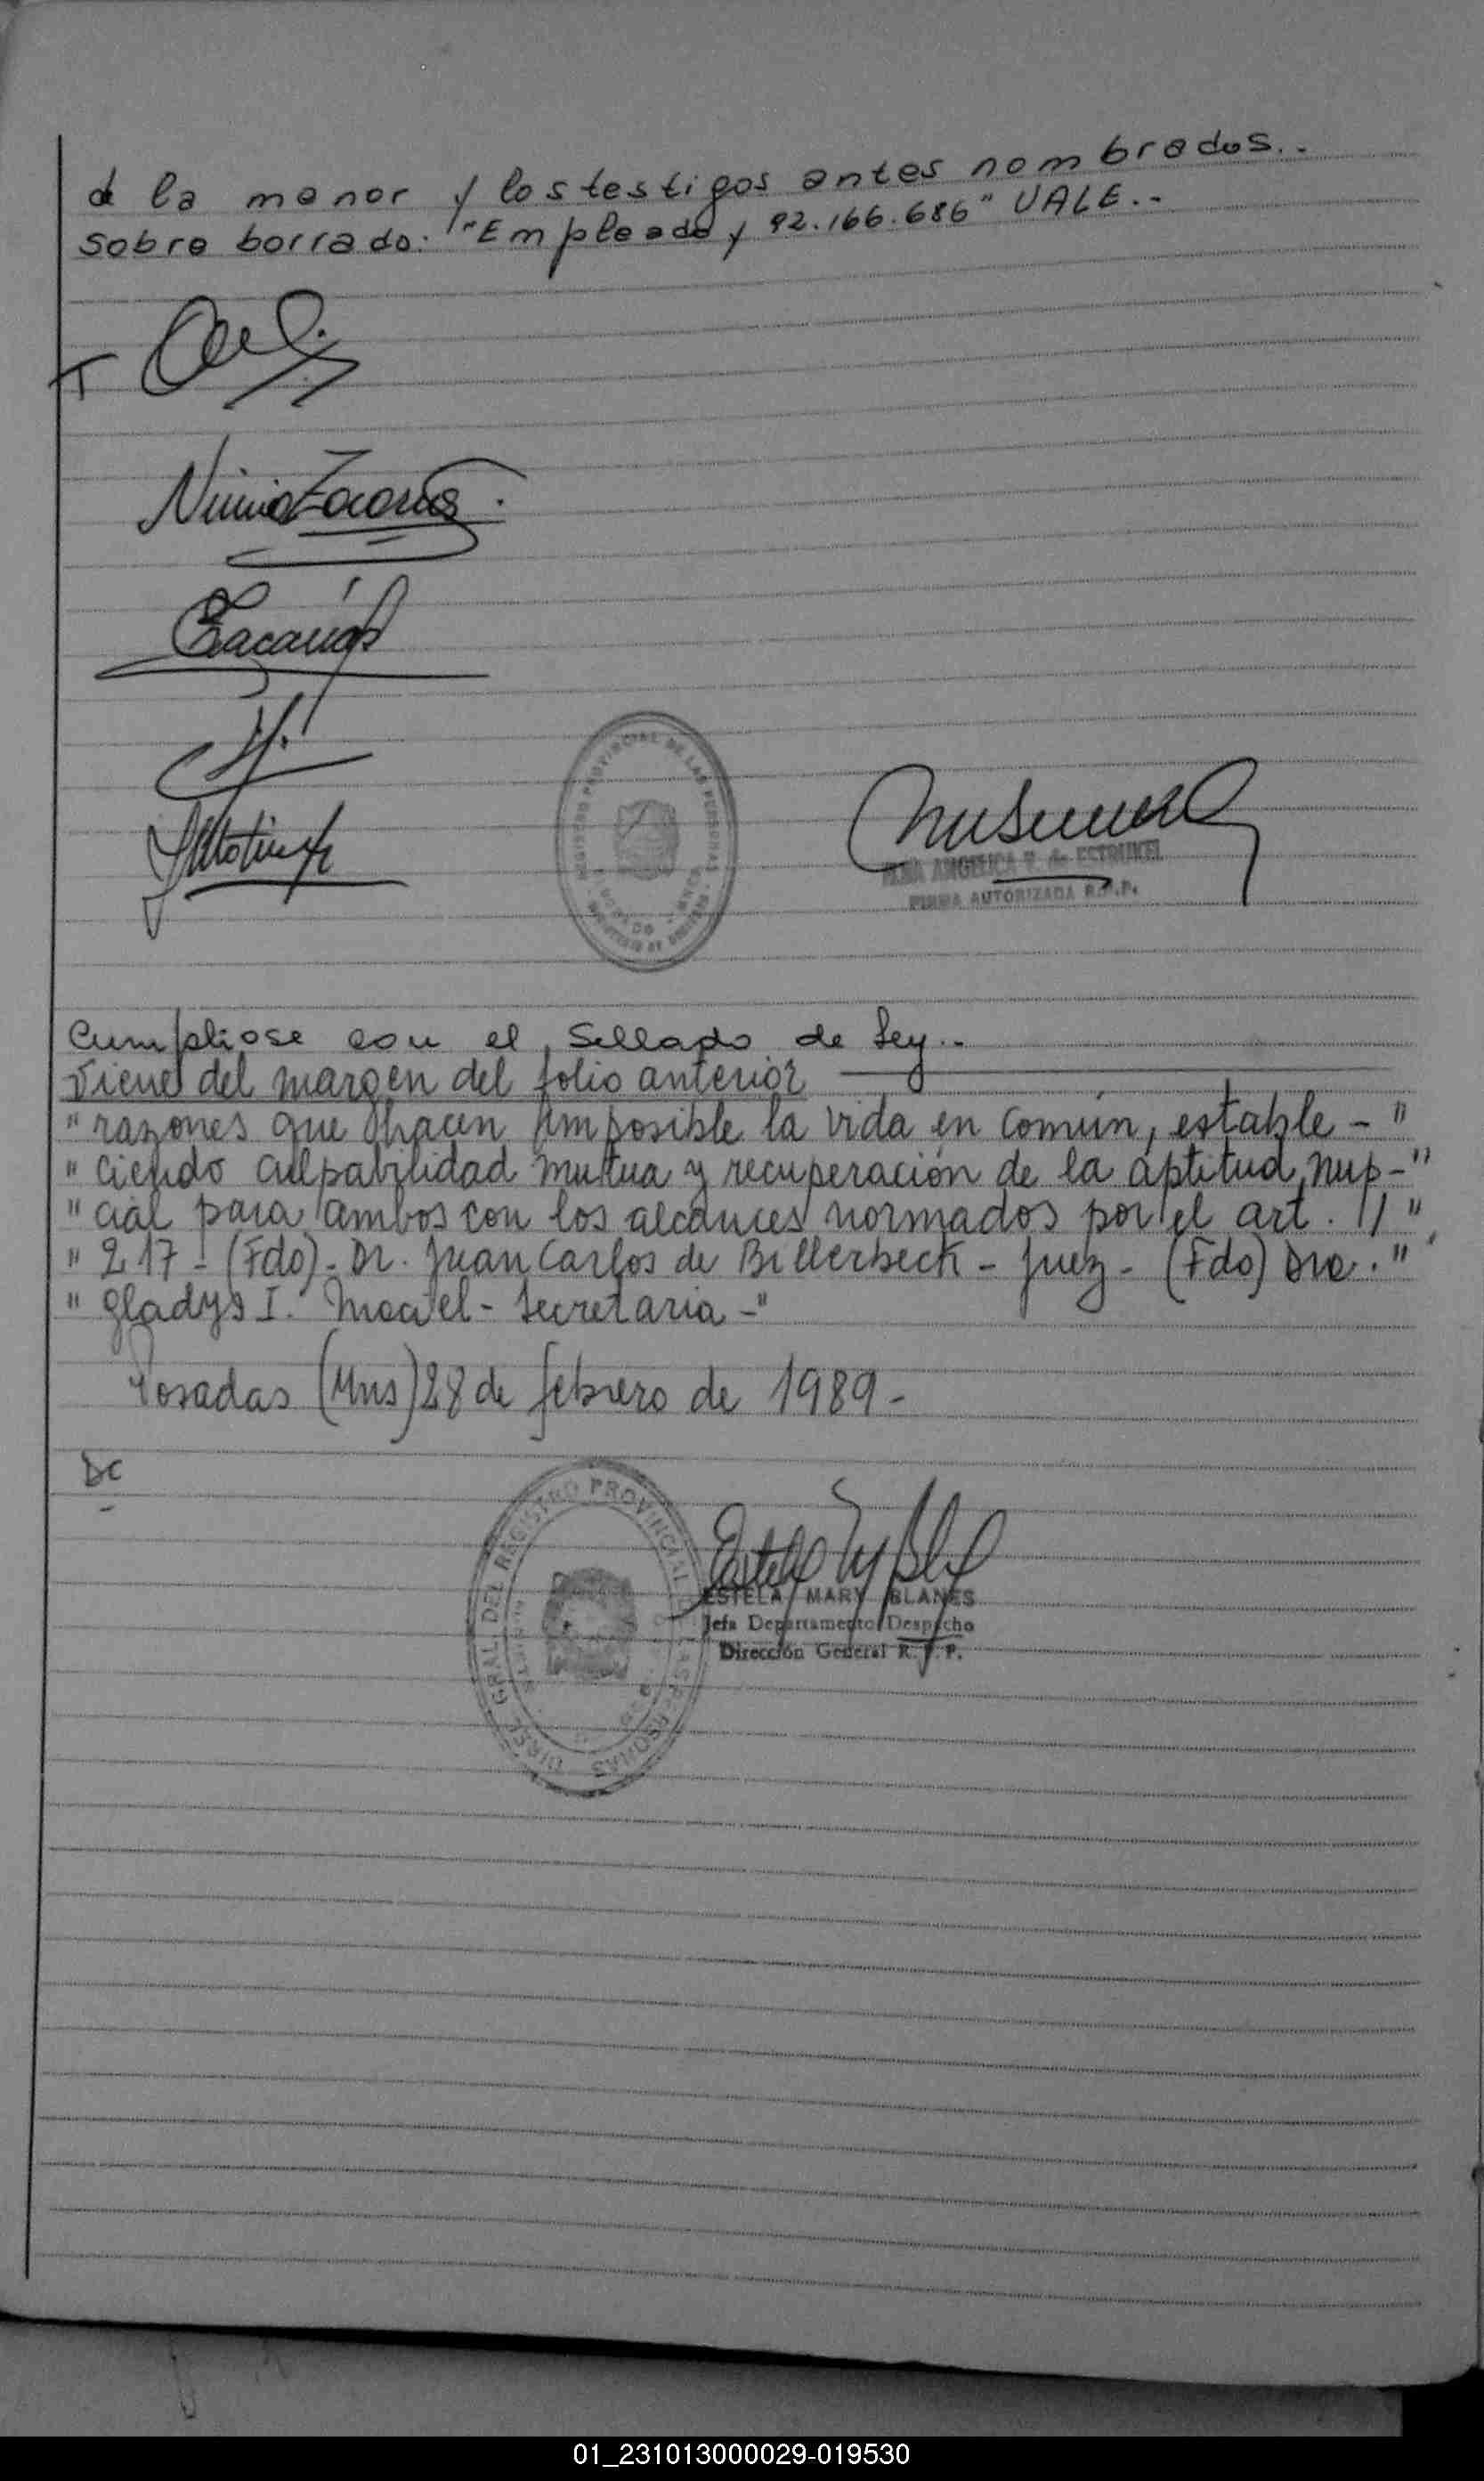 de la menor y los testigos antes nombrados..
sobre borrado: "Empleado y 92.166.686" VALE..
T
Zacarías
REGISTRO PROVINCIAL DE LAS PERSONAS
ANGELICA V. de
FIRMA AUTORIZADA R.P.P.
Cumpliose con el Sellado de Ley..
Viene del margen del folio anterior
" razones que hacen imposible la vida en común, estable - "
" ciendo culpabilidad mutua y recuperación de la aptitud nup- "
" cial para ambos con los alcances normados por el art. // "
" 217 - (Fdo) - Dr. Juan Carlos de Billerbeck - Juez - (Fdo) Dra. "
" Gladys I. Maciel - Secretaria - "
Posadas (Mns) 28 de febrero de 1989 -
DC
DIREC. GRAL. DEL REGISTRO PROVINCIAL DE LAS PERSONAS
ESTELA MARY BLANES
Jefa Departamento Despacho
Dirección General R. P. P.
01_231013000029-019530